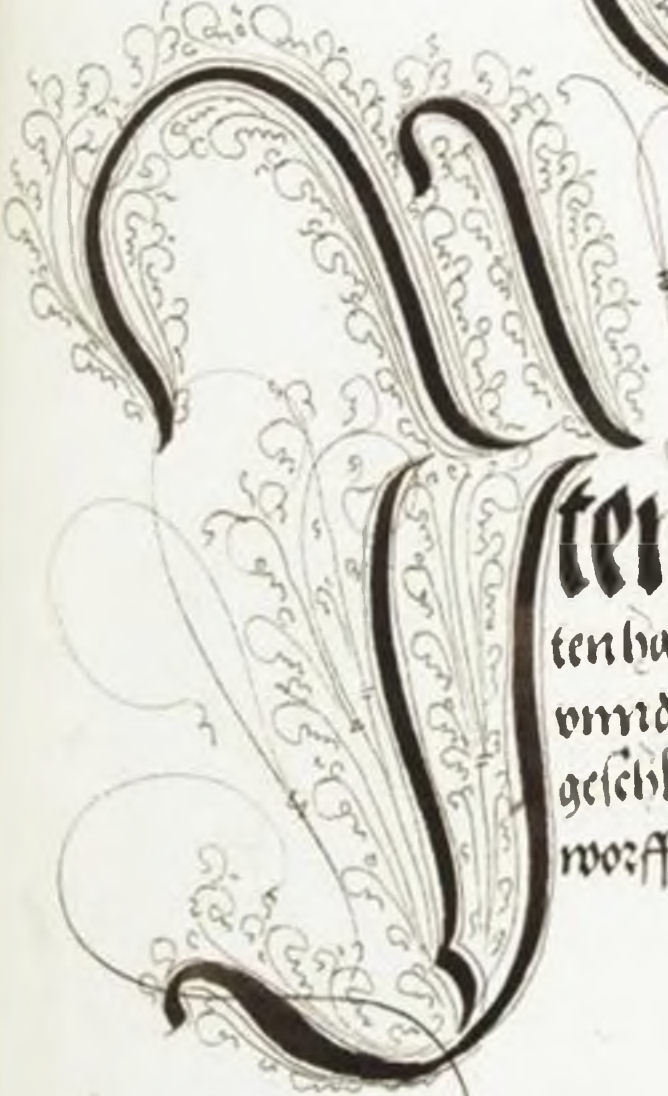 ten
ten ha
vnnd
geschl
worff